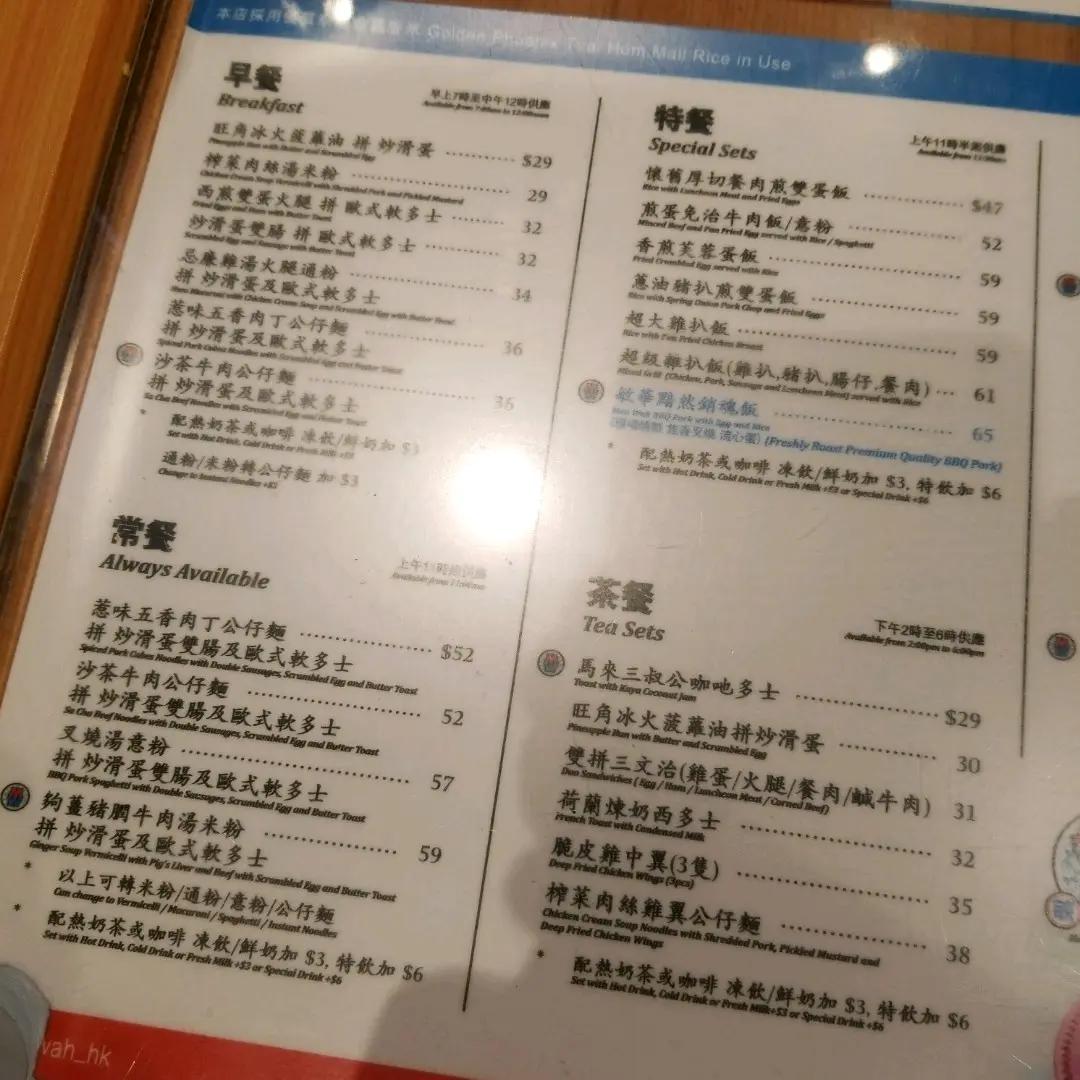 本店採用 Golden Phoenix Thai Hom Mali Rice in Use
早餐
Breakfast
早上7時至中午12時供應
Available from 7:00am to 12:00noon
旺角冰火菠蘿油 拼 炒滑蛋 $29
Pineapple Bun with Butter and Scrambled Egg
榨菜肉絲湯米粉 29
Chicken Cream Soup Vermicelli with Shredded Pork and Pickled Mustard
西煎雙蛋火腿 拼 歐式軟多士 32
Fried Eggs and Ham with Butter Toast
炒滑蛋雙腸 拼 歐式軟多士 32
Scrambled Egg and Sausage with Butter Toast
忌廉雞湯火腿通粉 34
拼 炒滑蛋及歐式軟多士
Ham Macaroni with Chicken Cream Soup and Scrambled Egg with Butter Toast
惹味五香肉丁公仔麵 36
拼 炒滑蛋及歐式軟多士
Spiced Pork Cubes Noodles with Scrambled Egg and Butter Toast
沙茶牛肉公仔麵 36
拼 炒滑蛋及歐式軟多士
Sa Cha Beef Noodles with Scrambled Egg and Butter Toast
* 配熱奶茶或咖啡 凍飲/鮮奶加 $3
Set with Hot Drink, Cold Drink or Fresh Milk +$3
通粉/米粉轉公仔麵 加 $3
Change to Instant Noodles +$3
常餐
Always Available
上午11時供應
Available from 11:00am
惹味五香肉丁公仔麵 $52
拼 炒滑蛋雙腸及歐式軟多士
Spiced Pork Cubes Noodles with Double Sausages, Scrambled Egg and Butter Toast
沙茶牛肉公仔麵 52
拼 炒滑蛋雙腸及歐式軟多士
Sa Cha Beef Noodles with Double Sausages, Scrambled Egg and Butter Toast
叉燒湯意粉 57
拼 炒滑蛋雙腸及歐式軟多士
BBQ Pork Spaghetti with Double Sausages, Scrambled Egg and Butter Toast
夠薑豬膶牛肉湯米粉 59
拼 炒滑蛋及歐式軟多士
Ginger Soup Vermicelli with Pig's Liver and Beef with Scrambled Egg and Butter Toast
* 以上可轉米粉/通粉/意粉/公仔麵
Can change to Vermicelli / Macaroni / Spaghetti / Instant Noodles
* 配熱奶茶或咖啡 凍飲/鮮奶加 $3, 特飲加 $6
Set with Hot Drink, Cold Drink or Fresh Milk +$3 or Special Drink +$6
特餐
Special Sets
上午11時半供應
Available from 11:30am
懷舊厚切餐肉煎雙蛋飯 $47
Rice with Luncheon Meat and Fried Eggs
煎蛋免治牛肉飯/意粉 52
Minced Beef and Pan Fried Egg served with Rice / Spaghetti
香煎芙蓉蛋飯 59
Fried Crumbled Egg served with Rice
蔥油豬扒煎雙蛋飯 59
Rice with Spring Onion Pork Chop and Fried Eggs
超大雞扒飯 59
Rice with Pan Fried Chicken Breast
超級雜扒飯(雞扒,豬扒,腸仔,餐肉) 61
Mixed Grill (Chicken, Pork, Sausage and Luncheon Meat) served with Rice
敏華黯然銷魂飯 65
Man Wah BBQ Pork with Egg and Rice
(Freshly Roast Premium Quality BBQ Pork)
* 配熱奶茶或咖啡 凍飲/鮮奶加 $3, 特飲加 $6
Set with Hot Drink, Cold Drink or Fresh Milk +$3 or Special Drink +$6
茶餐
Tea Sets
下午2時至6時供應
Available from 2:00pm to 6:00pm
馬來三叔公咖吔多士 $29
Toast with Kaya Coconut Jam
旺角冰火菠蘿油拼炒滑蛋 30
Pineapple Bun with Butter and Scrambled Egg
雙拼三文治(雞蛋/火腿/餐肉/鹹牛肉) 31
Duo Sandwiches ( Egg / Ham / Luncheon Meat / Corned Beef)
荷蘭煉奶西多士 32
French Toast with Condensed Milk
脆皮雞中翼(3隻) 35
Deep Fried Chicken Wings (3pcs)
榨菜肉絲雞翼公仔麵 38
Chicken Cream Soup Noodles with Shredded Pork, Pickled Mustard and
Deep Fried Chicken Wings
* 配熱奶茶或咖啡 凍飲/鮮奶加 $3, 特飲加 $6
Set with Hot Drink, Cold Drink or Fresh Milk+$3 or Special Drink +$6
wah_hk